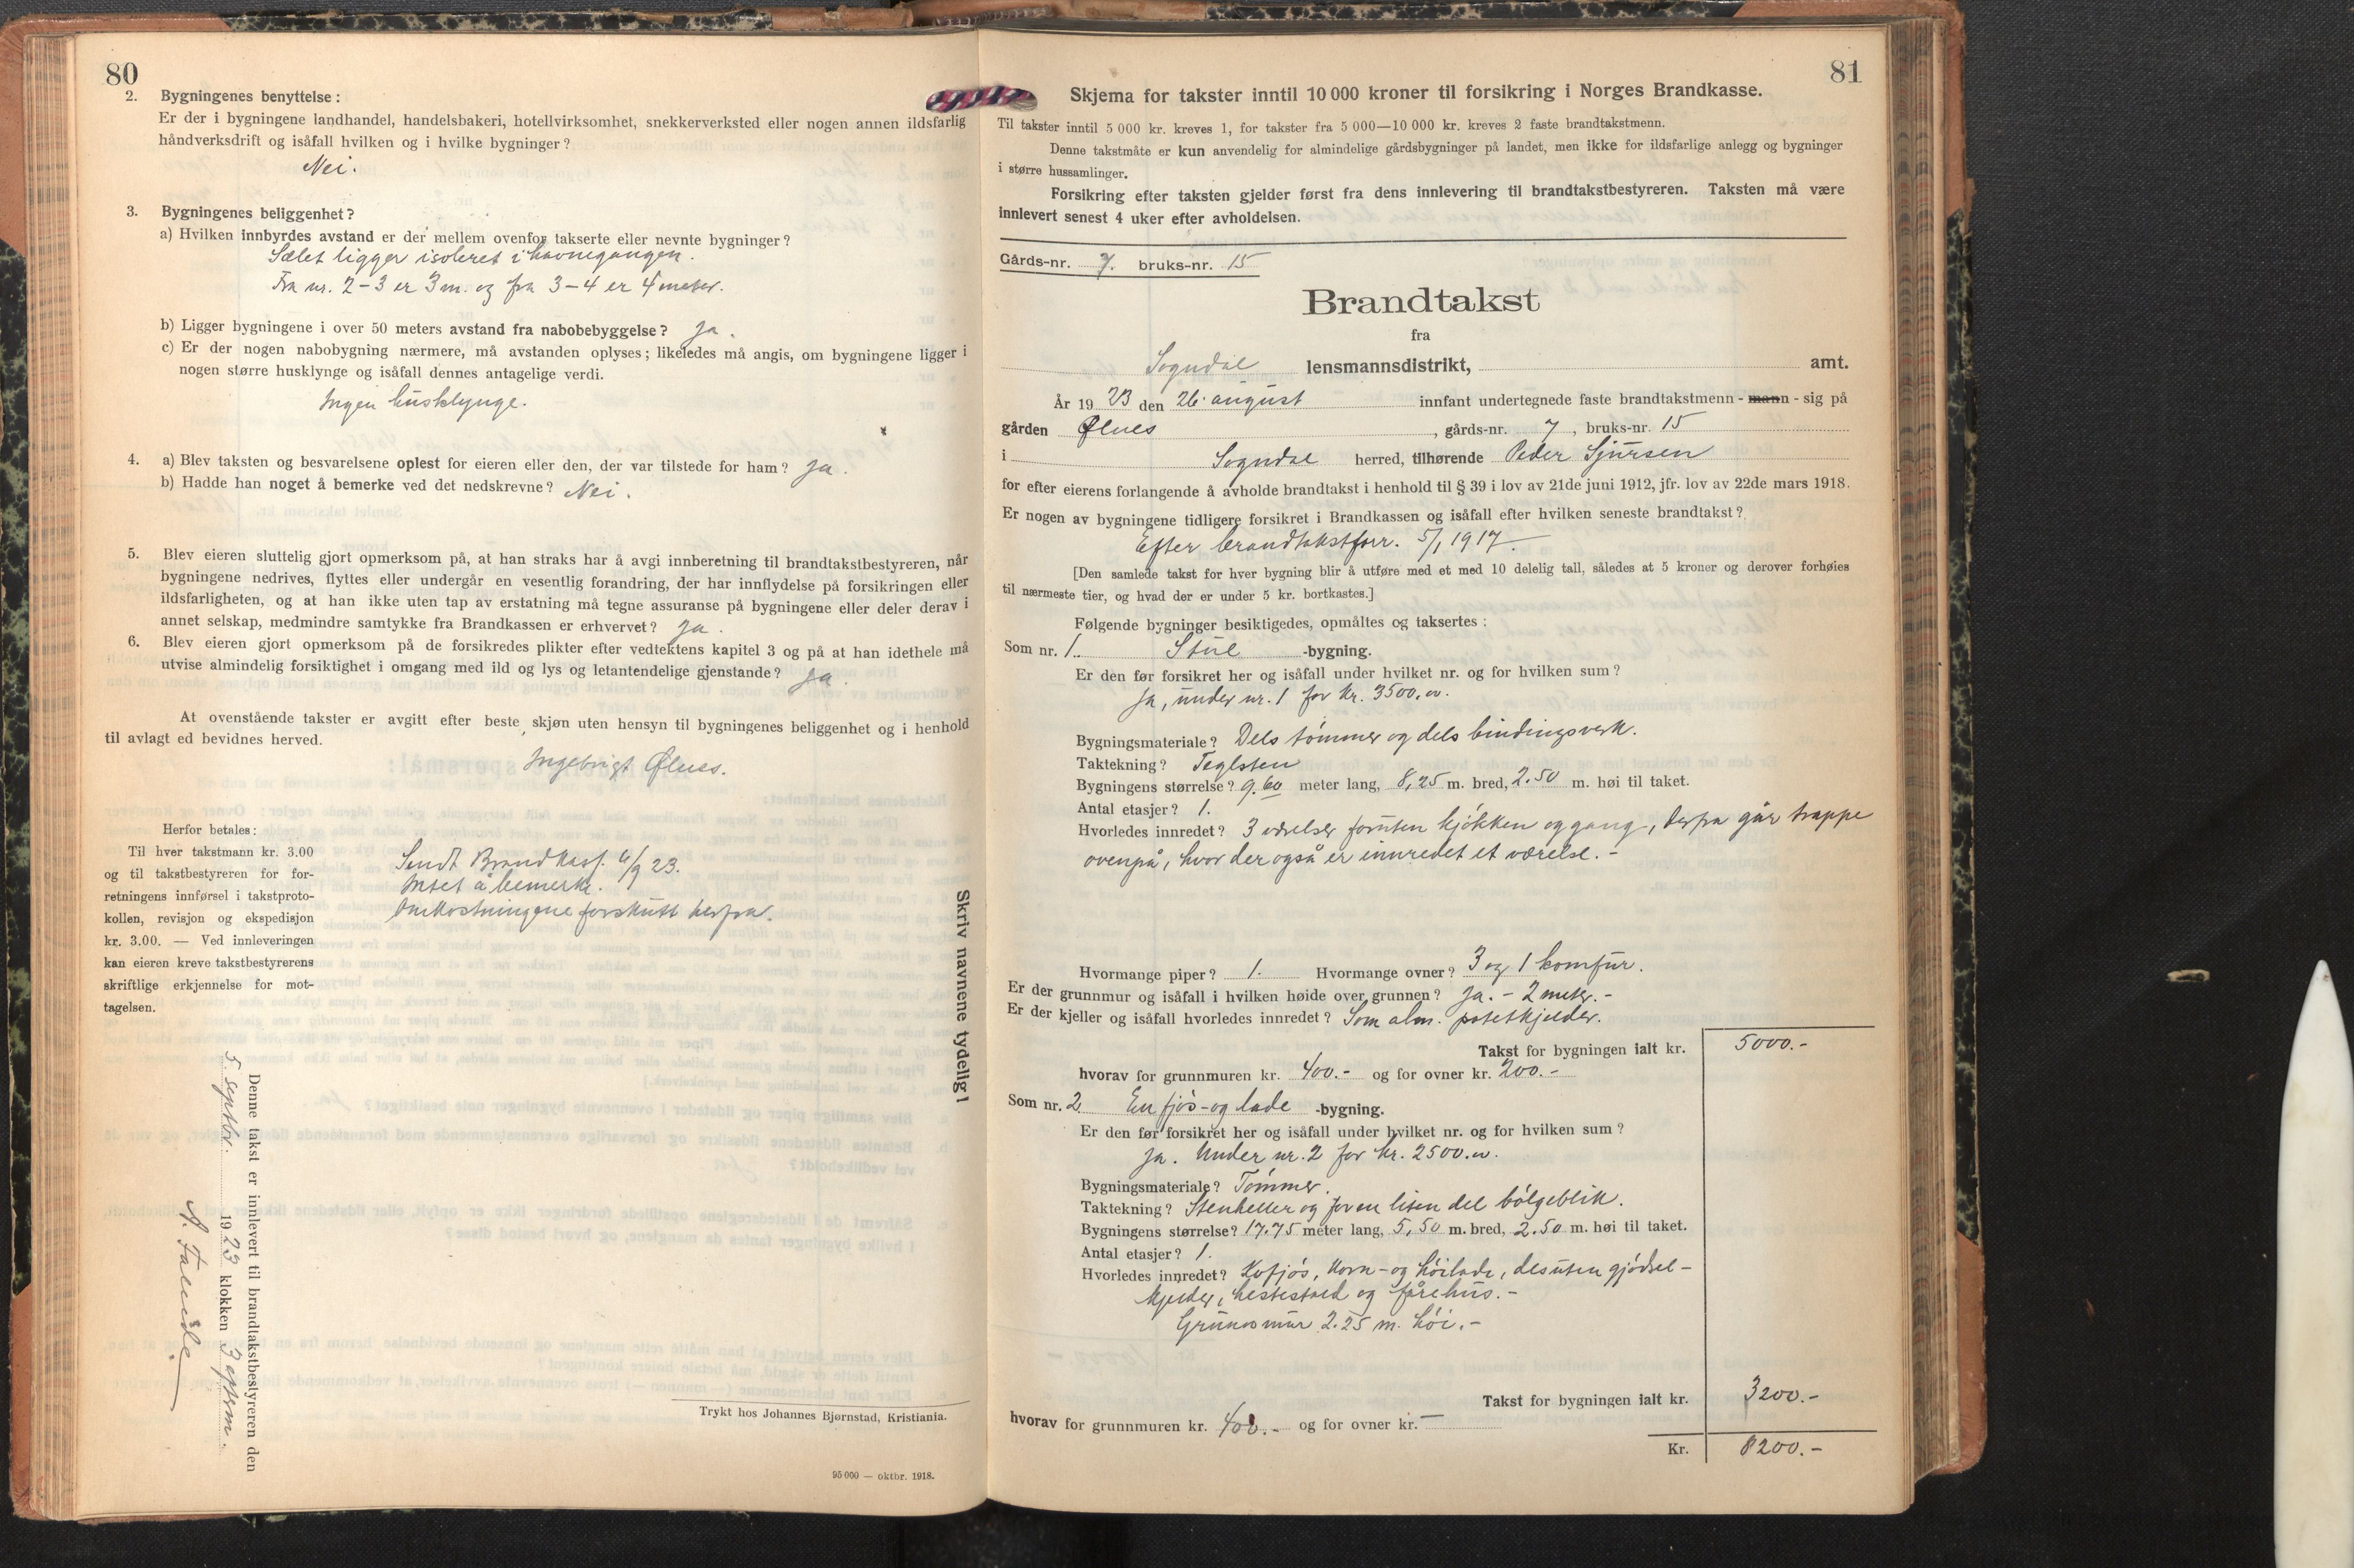 80
2. Bygningenes benyttelse:
Er der i bygningene landhandel, handelsbakeri, hotellvirksomhet, snekkerverksted eller nogen annen ildsfarlig
håndverksdrift og isåfall hvilken og i hvilke bygninger?
Nei.
3. Bygningenes beliggenhet?
a) Hvilken innbyrdes avstand er der mellem ovenfor takserte eller nevnte bygninger?
Sælet ligger isoleret i havnegangen.
Fra nr. 2-3 er 3 m. og fra 3-4 er 4 meter.
b) Ligger bygningene i over 50 meters avstand fra nabobebyggelse? Ja.
c) Er der nogen nabobygning nærmere, må avstanden oplyses; likeledes må angis, om bygningene ligger i
nogen større husklynge og isåfall dennes antagelige verdi.
Ingen husklynge.
4. a) Blev taksten og besvarelsene oplest for eieren eller den, der var tilstede for ham? Ja.
b) Hadde han noget å bemerke ved det nedskrevne? Nei.
5. Blev eieren sluttelig gjort opmerksom på, at han straks har å avgi innberetning til brandtakstbestyreren, når
bygningene nedrives, flyttes eller undergår en vesentlig forandring, der har innflydelse på forsikringen eller
ildsfarligheten, og at han ikke uten tap av erstatning må tegne assuranse på bygningene eller deler derav i
annet selskap, medmindre samtykke fra Brandkassen er erhvervet? Ja.
6. Blev eieren gjort opmerksom på de forsikredes plikter efter vedtektens kapitel 3 og på at han idethele må
utvise almindelig forsiktighet i omgang med ild og lys og letantendelige gjenstande? Ja.
At ovenstående takster er avgitt efter beste skjøn uten hensyn til bygningenes beliggenhet og i henhold
til avlagt ed bevidnes herved.
Ingebrigt Ølnes.
Herfor betales:
Til hver takstmann kr. 3.00
og til takstbestyreren for for-
retningens innførsel i takstproto-
kollen, revisjon og ekspedisjon
kr. 3.00. — Ved innleveringen
kan eieren kreve takstbestyrerens
skriftlige erkjennelse for mot-
tagelsen.
Sendt Brandkass. 6/9 23.
Intet å bemerke.
Omkostningene forskutt herfra.
Skriv navnene tydelig!
Denne takst er innlevert til brandtakstbestyreren den
5. septbr. 1923 klokken 3 efterm.
Trykt hos Johannes Bjørnstad, Kristiania.
95 000 — oktbr. 1918.
81
Skjema for takster inntil 10 000 kroner til forsikring i Norges Brandkasse.
Til takster inntil 5 000 kr. kreves 1, for takster fra 5 000—10 000 kr. kreves 2 faste brandtakstmenn.
Denne takstmåte er kun anvendelig for almindelige gårdsbygninger på landet, men ikke for ildsfarlige anlegg og bygninger
i større hussamlinger.
Forsikring efter taksten gjelder først fra dens innlevering til brandtakstbestyreren. Taksten må være
innlevert senest 4 uker efter avholdelsen.
Gårds-nr. 7. bruks-nr. 15
Brandtakst
fra
Sogndal lensmannsdistrikt, amt.
År 1923 den 26. august innfant undertegnede faste brandtakstmenn - mann - sig på
gården Ølnes, gårds-nr. 7, bruks-nr. 15
i Sogndal herred, tilhørende Peder Sjursen
for efter eierens forlangende å avholde brandtakst i henhold til § 39 i lov av 21de juni 1912, jfr. lov av 22de mars 1918.
Er nogen av bygningene tidligere forsikret i Brandkassen og isåfall efter hvilken seneste brandtakst?
Efter brandtakstforr. 5/1 1917.
[Den samlede takst for hver bygning blir å utføre med et med 10 delelig tall, således at 5 kroner og derover forhøies
til nærmeste tier, og hvad der er under 5 kr. bortkastes.]
Følgende bygninger besiktigedes, opmåltes og taksertes:
Som nr. 1. Stue -bygning.
Er den før forsikret her og isåfall under hvilket nr. og for hvilken sum?
Ja, under nr. 1 for kr. 3500.
Bygningsmateriale? Dels tømmer og dels bindingsverk.
Taktekning? Teglsten
Bygningens størrelse? 9.60 meter lang, 8,25 m. bred, 2.50 m. høi til taket.
Antal etasjer? 1.
Hvorledes innredet? 3 værelser foruten kjøkken og gang, derfra går trappe
ovenpå, hvor der også er innredet et værelse. -
Hvormange piper? 1. Hvormange ovner? 3 og 1 komfur.
Er der grunnmur og isåfall i hvilken høide over grunnen? Ja. - 2 meter. -
Er der kjeller og isåfall hvorledes innredet? Som alm. potetkjelder.
Takst for bygningen ialt kr. 5000.-
hvorav for grunnmuren kr. 400.- og for ovner kr. 200.-
Som nr. 2 En fjøs-og lade -bygning.
Er den før forsikret her og isåfall under hvilket nr. og for hvilken sum?
Ja. Under nr. 2 for kr. 2500.
Bygningsmateriale? Tømmer.
Taktekning? Stenheller og for en liten del bølgeblik.
Bygningens størrelse? 17.75 meter lang, 5,50 m. bred, 2.50 m. høi til taket.
Antal etasjer? 1.
Hvorledes innredet? Kufjøs, korn- og høilade, desuten gjødsel-
kjelder, hestestald og fårehus. -
Grunnmur 2.25 m. høi. -
Takst for bygningen ialt kr. 3200.-
hvorav for grunnmuren kr. 400.- og for ovner kr. —
Kr. 8200.-